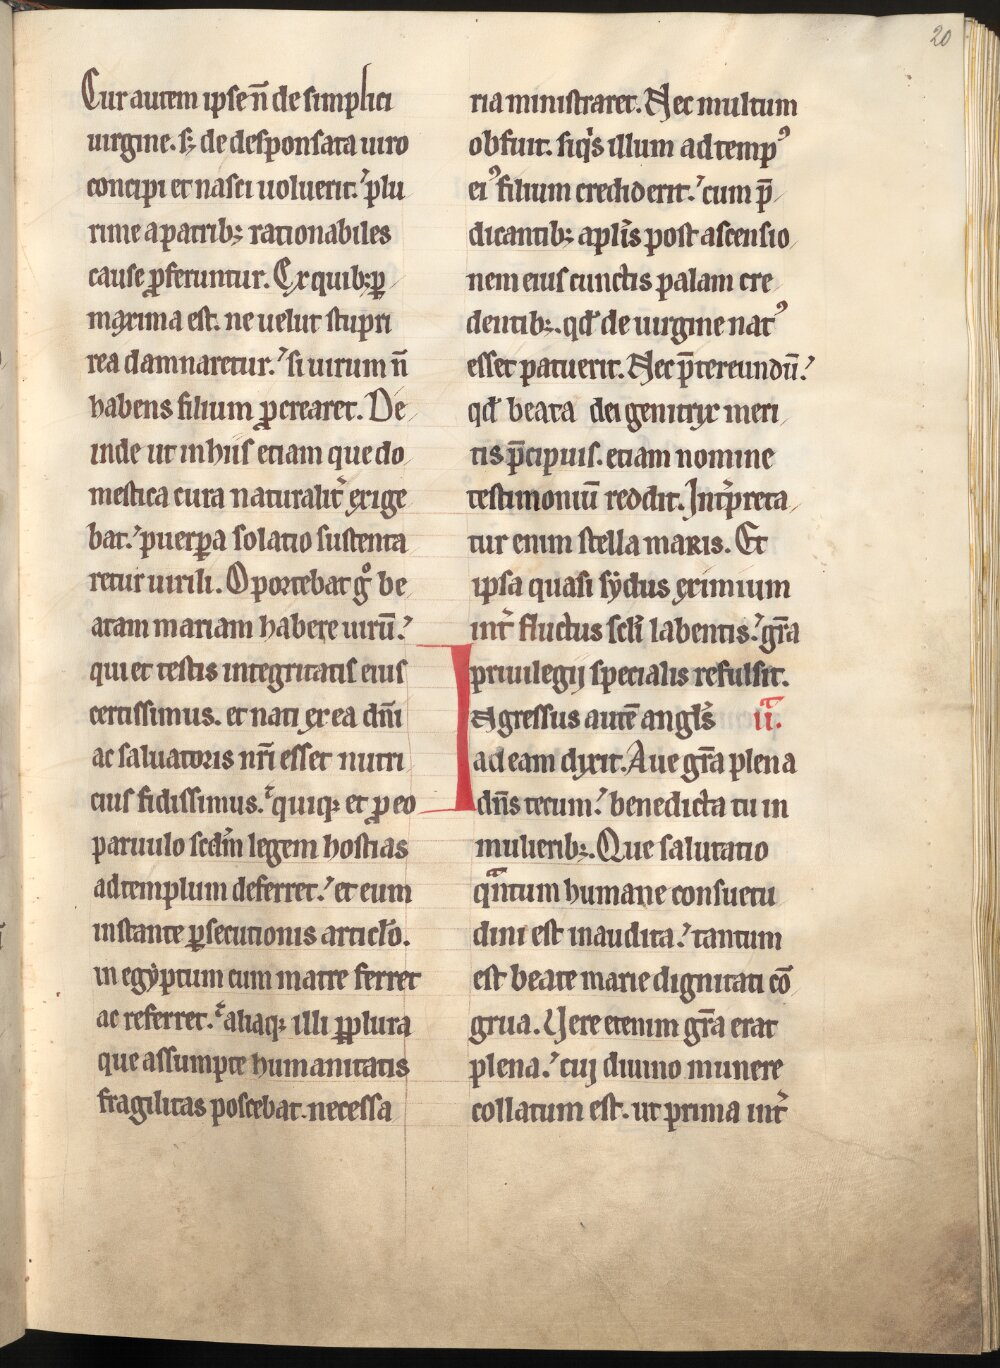 20
Cur autem ipse n̄ de simplici
uirgine. sꝫ de desponsata uiro
concipi et nasci uoluerit.ʼ plu
rime a patribꝫ rationabiles
cause ꝓferuntur. Ex quibꝫ ꝑ
maxima est. ne uelut stupri
rea damnaretur.ʼ si uirum n̄
habens filium ꝓcrearet. De
inde ut in hiis etiam que do
mestica cura naturalit͛ exige
bat.ʼ puerꝑa solatio sustenta
retur uirili. Oportebat gͦ be
atam mariam habere uirū.ʼ
qui et testis integritatis eius
certissimus. et nati ex ea dn̄i
ac saluatoris nr̄i esset nutri
cius fidissimus.ʼ quiqꝫ et ꝓ eo
paruulo scd̄m legem hostias
ad templum deferret.ʼ et eum
instante ꝑsecutionis articlo̅.
in egẏptum cum matre ferret
ac referret.ʼ aliaqꝫ illi ꝑplura
que assumpte humanitatis
fragilitas poscebat. necessa
ria ministraret. Nec multum
obfuit. siqͥs illum ad tempꝰ
eiꝰ filium crediderit.ʼ cum p̄
dicantibꝫ apl̄is post ascensio
nem eius cunctis palam cre
dentibꝫ. qd̄ de uirgine natꝰ
esset patuerit. Nec p̄tereundū.ʼ
qd̄ beata dei genitrix meri
tis p̄cipuis. etiam nomine
testimoniū reddit. Int͛preta
tur enim stella maris. Et
ipsa quasi sẏdus eximium
int͛ fluctus scl̄i labentis.ʼ gr̄a
priuilegij specialis refulsit.
Ingressus autē angl̄s ii.ᵃ
ad eam dixit. Aue gr̄a plena
dn̄s tecum.ʼ benedicta tu in
mulieribꝫ. Que salutatio
qᵃntum humane consuetu
dini est inaudita.ʼ tantum
est beate marie dignitati cō
grua. Vere etenim gr̄a erat
plena.ʼ cuj diuino munere
collatum est. ut prima int͛